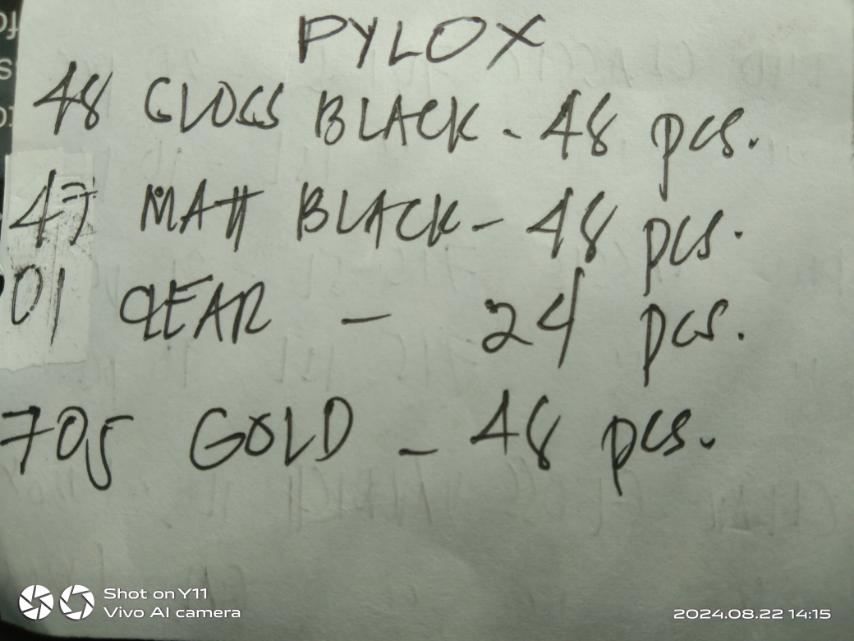 PYLOX
48 GLOSS BLACK - 48 pcs.
47 MATT BLACK - 48 pcs.
01 CLEAR - 24 pcs.
705 GOLD - 48 pcs.
Shot on Y11
Vivo AI camera
2024.08.22 14:15